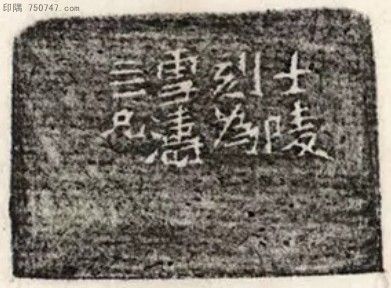 印隅 750747.com
士陵
刻為
雪濤
三兄